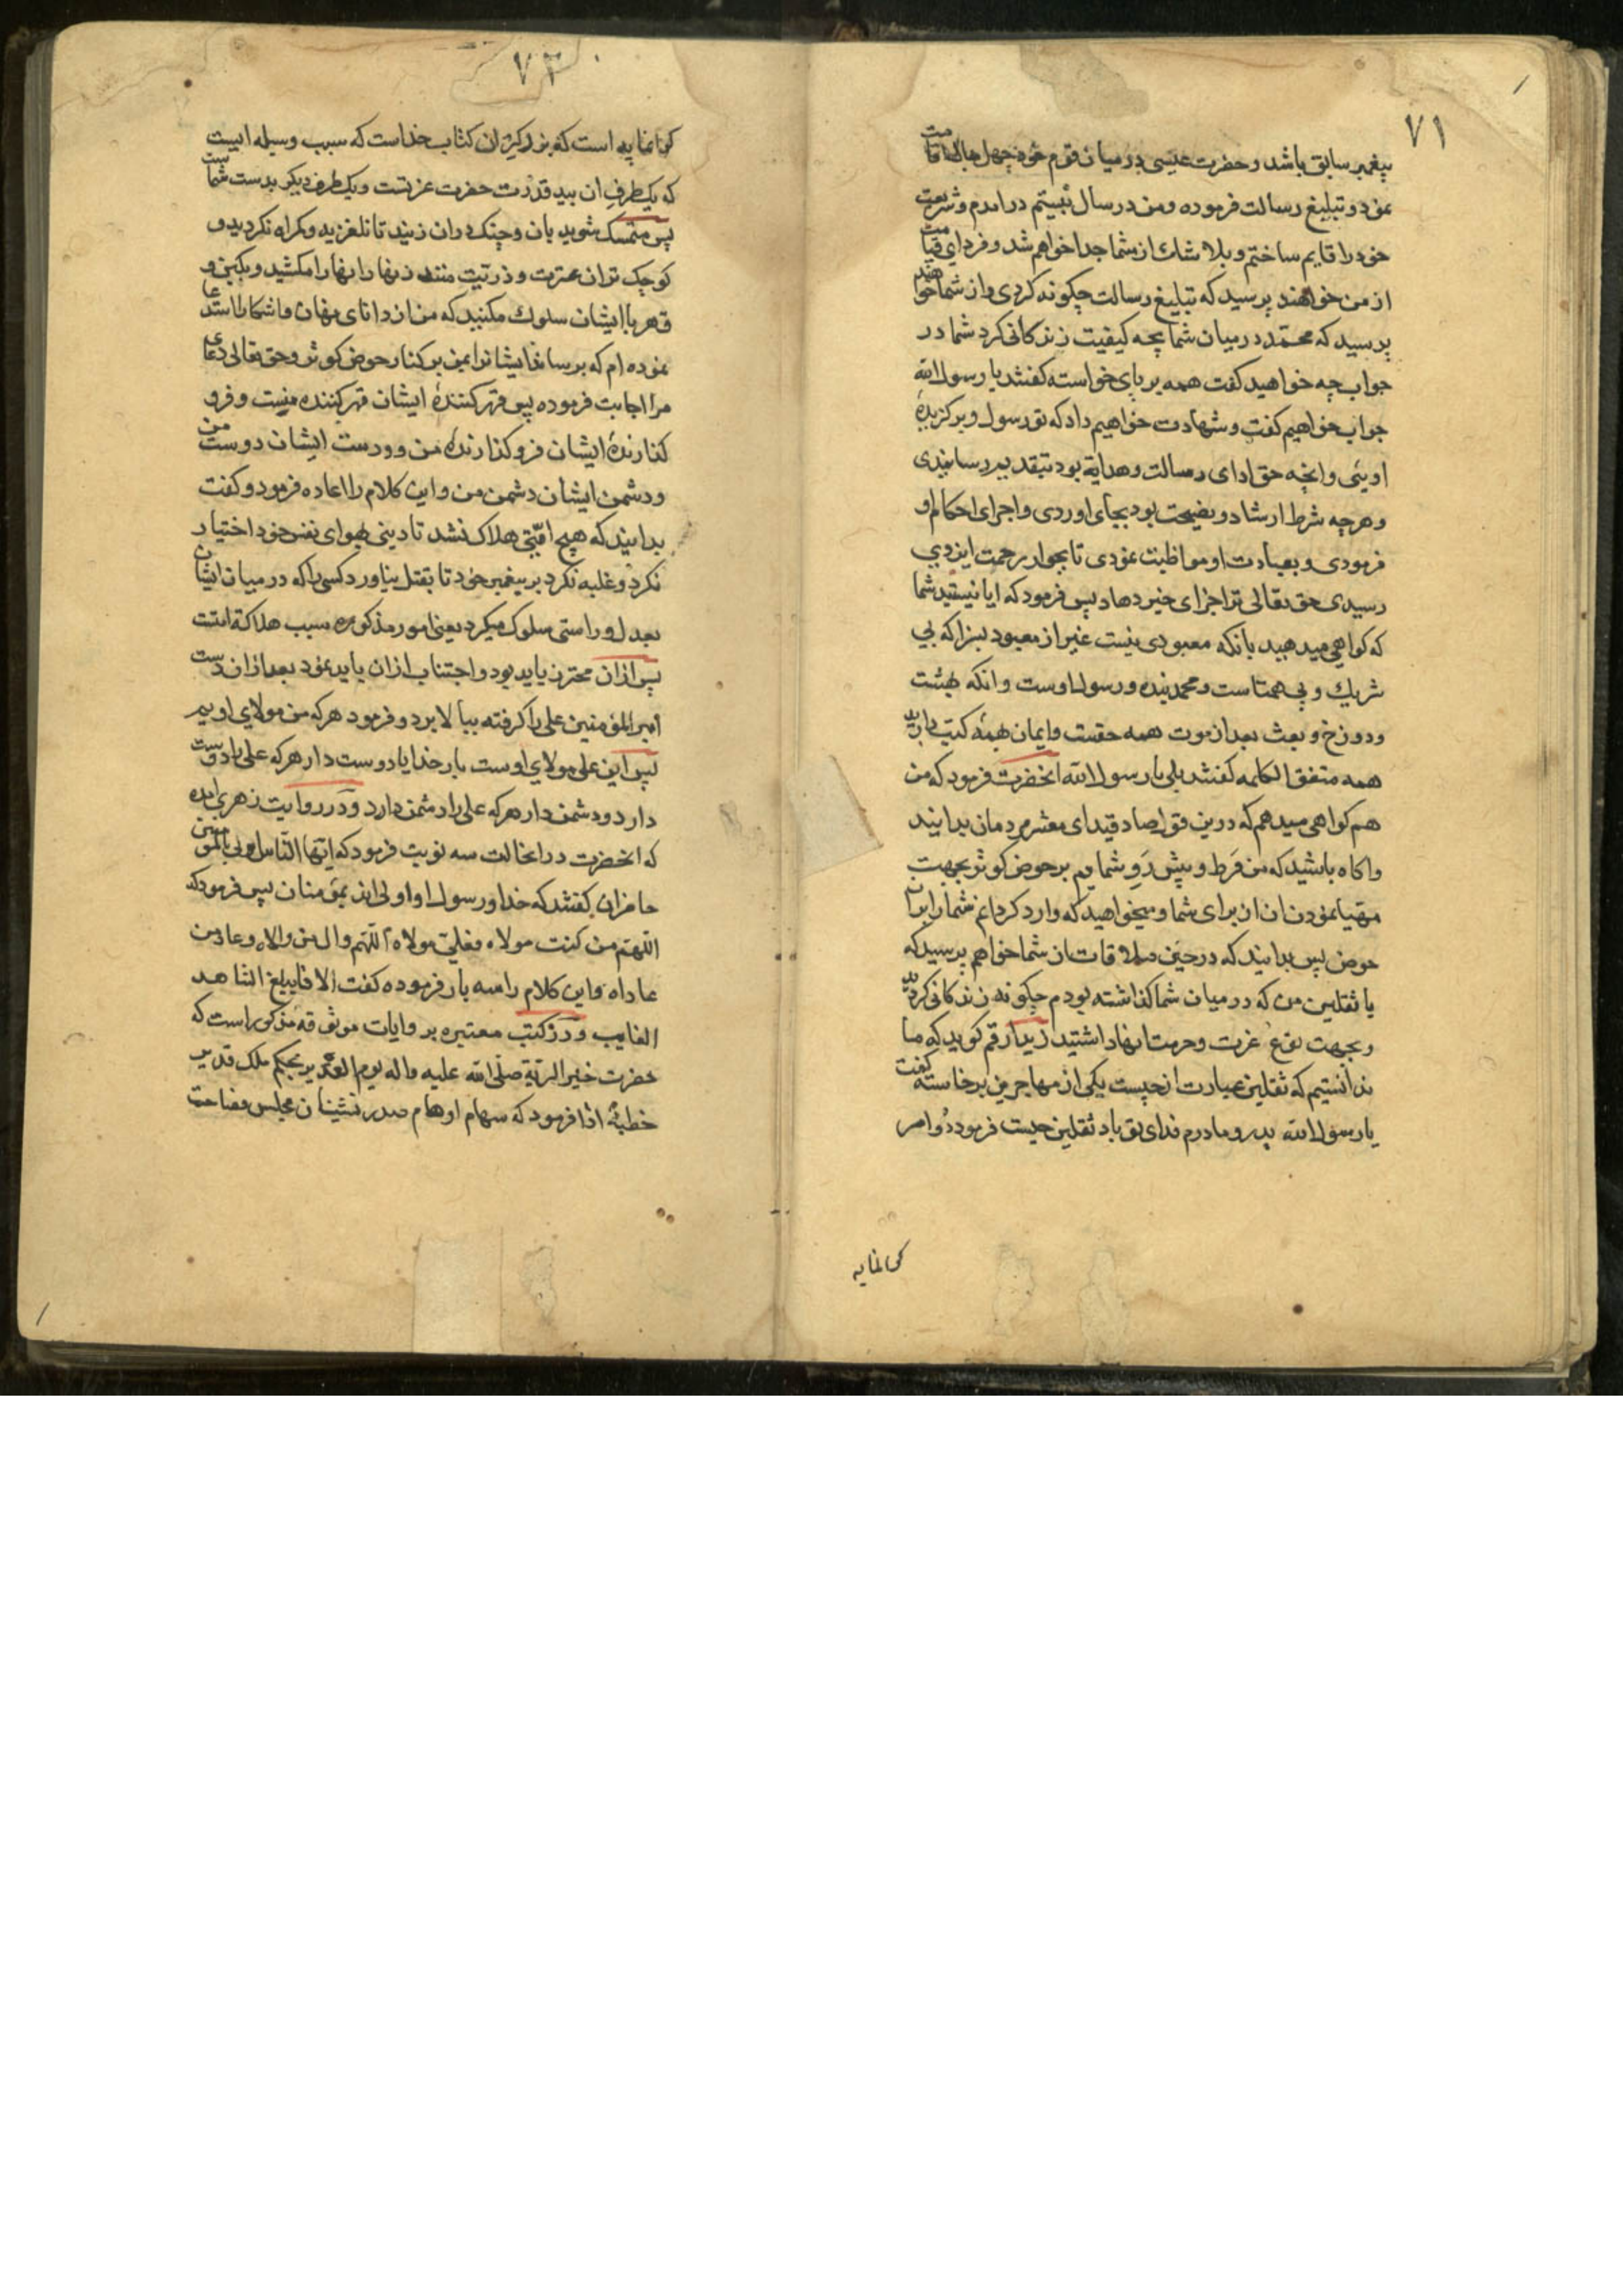 ۷۱
پیغمبر سابق باشد و حضرت عیسی در میان قوم خود چهل سال اقامت
نمود و تبلیغ رسالت فرموده و من در سال بیستم درامدم و شریعت
خود را قایم ساختم و بلا شك از شما جدا خواهم شد و فردای قیامت
از من خواهند پرسید که تبلیغ رسالت چکونه کردی و از شما خواهند
پرسید که محمّد در میان شما بچه کیفیت زندکانی کرد شما در
جواب چه خواهید کفت همه بر پای خواسته کفتند یا رسول الله
جواب خواهیم کفت و شهادت خواهیم داد که تو رسول و برکزیدۀ
اویی و انچه حق ادای رسالت و هدایة بود بتقدیم رسانیدی
و هرچه شرط ارشاد و نصیحت بود بجای اوردی و اجرای احکام او
فرمودی و بعبادت او مواظبت نمودی تا بجوار رحمت ایزدی
رسیدی حق تعالی ترا جزای خیر دهاد پس فرمود که ایا نیستید شما
که کواهی میدهید بانکه معبودی نیست غیر از معبود بسزا که بی
شریك و بی همتاست و محمد بنده و رسول اوست و انکه بهشت
و دوزخ و بعث بعد از موت همه حقست و ایمان بهمۀ کتب دارید
همه متفق الکلمه کفتند بلی یا رسول الله انحضرت فرمود که من
هم کواهی میدهم که درین قول صادقید ای معشر مردمان بدانید
و اکاه باشید که من فَرَط و پیش رَوِ شمایم بر حوض کوثر بجهت
مهیا نمودن ان از برای شما و میخواهید که وارد کردانم شما را بر ان
حوض پس بدانید که در حین ملاقات از شما خواهم پرسید که
با ثقلین من که در میان شما کذاشته بودم چکونه زندکانی کردید
و بچه نوع عزت و حرمت انها داشتید زید ارقم کوید که ما
ندانستیم که ثقلین عبارت از چیست یکی از مهاجرین برخاسته کفت
یا رسول الله پدر و مادرم فدای تو باد ثقلین چیست فرمود دو امر
کرانمایه
۷۲
کرانمایه است که بزرکتر ان کتاب خداست که سبب وسیله ایست
که یک طرف ان بید قدرت حضرت عزتست و یک طرف دیکر بدست شماست
پس متمسک شوید بان و چنک در ان زنید تا نلغزید و کمراه نکردید و
کوچک تر ان عترت و ذریت منند زنهار انها را مکشید و بکین و
قهر با ایشان سلوک مکنید که من از دانای نهان و اشکارا استدعا
نموده ام که برساند ایشانرا بمن بر کنار حوض کوثر و حق تعالی دعای
مرا اجابت فرموده پس قهر کنندۀ ایشان قهر کنندۀ منست و فرو
کذارندۀ ایشان فرو کذارندۀ من و دوست ایشان دوست من
و دشمن ایشان دشمن من و این کلام را اعاده فرمود و کفت
بدانید که هیچ امّتی هلاک نشد تا دینی بهوای نفس خود اختیار
نکرد و غلبه نکرد بر پیغمبر خود تا بقتل نیاورد کسی را که در میان ایشان
بعدل و راستی سلوک میکرد یعنی امور مذکوره سبب هلاکة امتست
پس ازان محترز باید بود و اجتناب ازان باید نمود بعد ازان دست
امیر المؤمنین علی را کرفته ببالا برد و فرمود هر که من مولای اویم
پس این علی مولای اوست بار خدایا دوست دار هر که علی را دوست
دارد و دشمن دار هر که علی را دشمن دارد و در روایت زهری امده
که انحضرت در انحالت سه نوبت فرمود که ایّها النّاس من اولی بالمؤمنین
حاضران کفتند که خدا و رسول او اولی اند بمؤمنان پس فرمود که
اللّهم من کنت مولاه فعلیّ مولاه اللّهم وال من والاه و عاد من
عاداه و این کلام را سه بار فرموده کفت الا فلیبلغ الشاهد
الغایب و در کتب معتبره بروایات موثوقه مذکور است که
حضرت خیر البریّة صلّی الله علیه و اله یوم الغدیر بحکم ملک قدیر
خطبۀ ادا فرمود که سهام اوهام صدر نشینان مجلس فصاحت